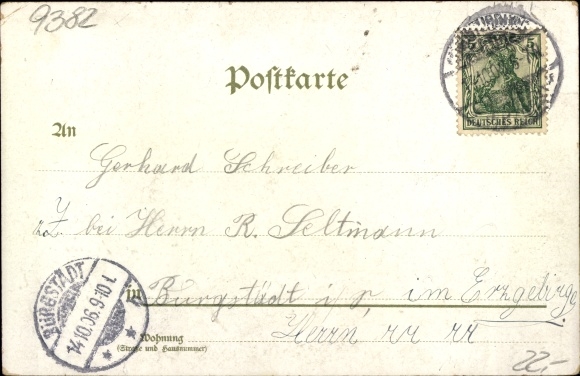 9382
5
DEUTSCHES REICH
Postkarte
An
Gerhard Schreiber
z. Z. bei Herrn R. Seltmann
in Burgstädt i/S im Erzgebirge
Herrn
Wohnung
(Straße und Hausnummer)
BURGSTÄDT
14.10.06.9-10 V.
22,-